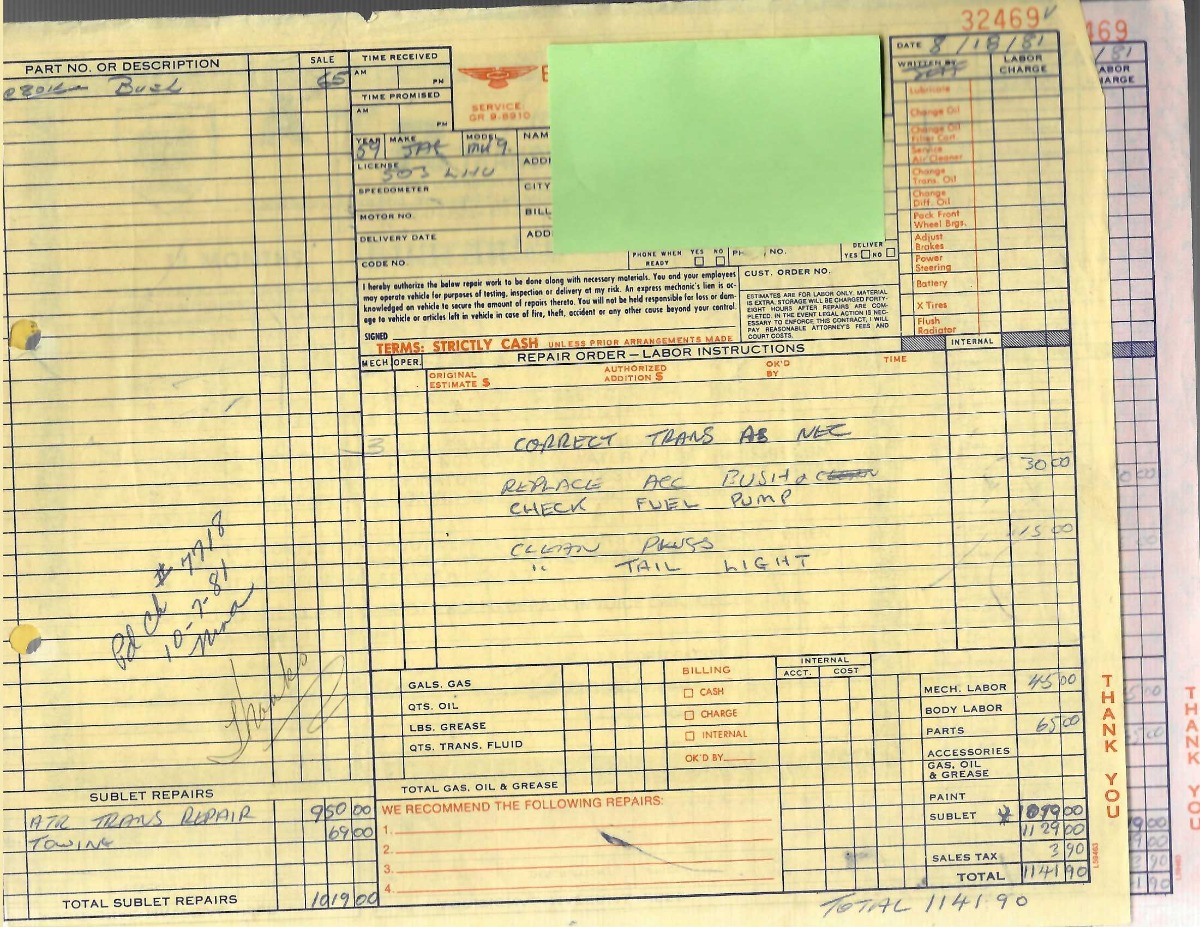 32469
469
PART NO. OR DESCRIPTION SALE
65
TIME RECEIVED
AM
PM
TIME PROMISED
AM
PM
SERVICE:
GR 9-8910
YEAR MAKE MODEL
59 JAG MK 9.
LICENSE
503 LHU
SPEEDOMETER
MOTOR NO.
DELIVERY DATE
CODE NO.
NAM
ADD
CITY
BILL
ADD
PHONE WHEN READY YES NO
NO.
DELIVER
YES NO
DATE 8/18/81
/81
WRITTEN BY
LABOR CHARGE
Lubricate
Change Oil
Change Oil Filter Cart.
Service Air Cleaner
Change Trans. Oil
Change Diff. Oil
Pack Front Wheel Brgs.
Adjust Brakes
Power Steering
Battery
X Tires
Flush Radiator
I hereby authorize the below repair work to be done along with necessary materials. You and your employees
may operate vehicle for purposes of testing, inspection or delivery at my risk. An express mechanic's lien is ac-
knowledged on vehicle to secure the amount of repairs thereto. You will not be held responsible for loss or dam-
age to vehicle or articles left in vehicle in case of fire, theft, accident or any other cause beyond your control.
SIGNED
CUST. ORDER NO.
ESTIMATES ARE FOR LABOR ONLY, MATERIAL
IS EXTRA. STORAGE WILL BE CHARGED FORTY-
EIGHT HOURS AFTER REPAIRS ARE COM-
PLETED. IN THE EVENT LEGAL ACTION IS NEC-
ESSARY TO ENFORCE THIS CONTRACT, I WILL
PAY REASONABLE ATTORNEY'S FEES AND
COURT COSTS.
TERMS: STRICTLY CASH UNLESS PRIOR ARRANGEMENTS MADE
INTERNAL
MECH OPER. REPAIR ORDER—LABOR INSTRUCTIONS
ORIGINAL ESTIMATE $ AUTHORIZED ADDITION $ OK'D BY TIME
3 CORRECT TRANS AS NEC
REPLACE ACC BUSH & CLEAN 30 00
CHECK FUEL PUMP
CLEAN PLUGS 15 00
" TAIL LIGHT
Pd Ch # 7718
10-7-81
Nina
Thanks
GALS. GAS
QTS. OIL
LBS. GREASE
QTS. TRANS. FLUID
TOTAL GAS, OIL & GREASE
BILLING
CASH
CHARGE
INTERNAL
OK'D BY
INTERNAL
ACCT. COST
MECH. LABOR 45 00
BODY LABOR
PARTS 65 00
ACCESSORIES
GAS, OIL & GREASE
PAINT
SUBLET 1019 00
1129 00
SALES TAX 3 90
TOTAL 1141 90
TOTAL 1141.90
THANK YOU
THANK YOU
SUBLET REPAIRS
ATR TRANS REPAIR 950 00
TOWING 69 00
TOTAL SUBLET REPAIRS 1019 00
WE RECOMMEND THE FOLLOWING REPAIRS:
1.
2.
3.
4.